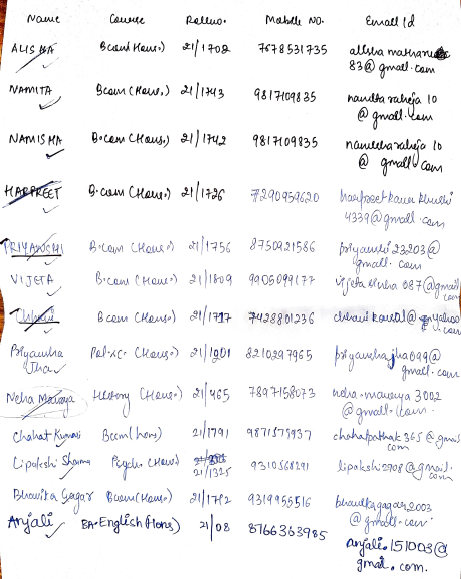 Name Course Rollno. Mobile No. Email Id
ALISHA Bcom(Hons.) 21/1702 7678531735
83@gmail.com
NAMITA Bcom(Hons.) 21/1743 9817109835 namita raheja 10
@gmail.com
NAMISHA B.com(Hons.) 21/1742 9817109835 raheja 10
@gmail.com
HARPREET B.com(Hons.) 21/1726 7290959620 harpreet kaur
4339@gmail.com
PRIYANSHI B.com(Hons.) 21/1756 8750921586 priyanshi23203@
gmail.com
VIJETA B.com(Hons) 21/1809 9905099177 087@gmail
com
Bcom(Hons.) 21/1717 7428801236
com
Priyansha Pol.sc. (Hons.) 21/1901 8210297965 priyanshajha099@
Jha gmail.com
Neha Maurya History (Hons.) 21/465 7897158073 neha.maurya3002
@gmail.com
Chahat Kumari Bcom(hons) 21/1791 9871578937 chahatpathak365@gmail
com
Lipakshi Sharma Psych (Hons) 9310568291 lipakshi2708@gmail.
21/1325 com
Bhavika Gagar Bcom(Hons.) 21/1782 9319955516 bhavikagagar2003
@gmail.com
Anjali BA.English(Hons) 21/08 8766363985 anjali.151003@
gmail.com.